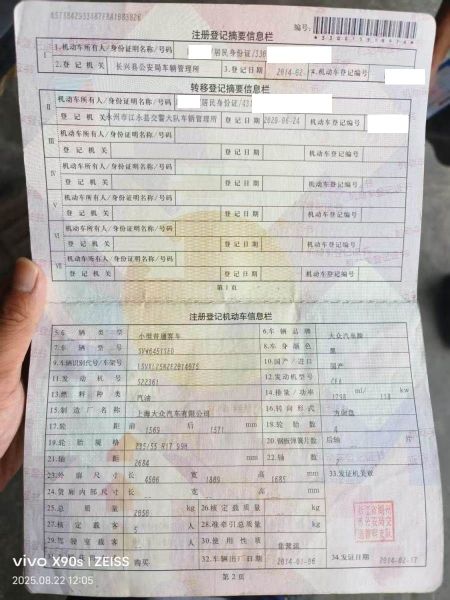 编号:
注册登记摘要信息栏
Ⅰ 1.机动车所有人/身份证明名称/号码 /居民身份证/330
2.登记机关 长兴县公安局车辆管理所 3.登记日期 2014-02- 4.机动车登记编号
转移登记摘要信息栏
Ⅱ 机动车所有人/身份证明名称/号码 /居民身份证/431
登记机关 永州市江永县交警大队车辆管理所 登记日期 2020-06-24 机动车登记编号
Ⅲ 机动车所有人/身份证明名称/号码
登记机关 登记日期 机动车登记编号
Ⅳ 机动车所有人/身份证明名称/号码
登记机关 登记日期 机动车登记编号
Ⅴ 机动车所有人/身份证明名称/号码
登记机关 登记日期 机动车登记编号
Ⅵ 机动车所有人/身份证明名称/号码
登记机关 登记日期 机动车登记编号
Ⅶ 机动车所有人/身份证明名称/号码
登记机关 登记日期 机动车登记编号
第1页
注册登记机动车信息栏
5.车辆类型 小型普通客车 6.车辆品牌 大众汽车牌
7.车辆型号 8.车身颜色 黑
9.车辆识别代号/车架号 10.国产/进口 国产
11.发动机号 S22361 12.发动机型号 CEA
13.燃料种类 汽油 14.排量/功率 1798 ml/ 118 kw
15.制造厂名称 上海大众汽车有限公司 16.转向形式 方向盘
17.轮距 前 1569 后 1571 mm 18.轮胎数 4
19.轮胎规格 235/55 R17 99H 20.钢板弹簧片数 后轴 片
21.轴距 2684 mm 22.轴数 2
23.外廓尺寸 长 4506 宽 1809 高 1685 mm 33.发证机关章
24.货厢内部尺寸 长 宽 高 mm
25.总质量 2050 kg 26.核定载质量 kg
27.核定载客 5 人 28.准牵引总质量 kg
29.驾驶室载客 人 30.使用性质 非营运
购买 32.车辆出厂日期 2014-01-06 34.发证日期 2014-02-17
第2页
vivo X90s | ZEISS
2025.08.22 12:05